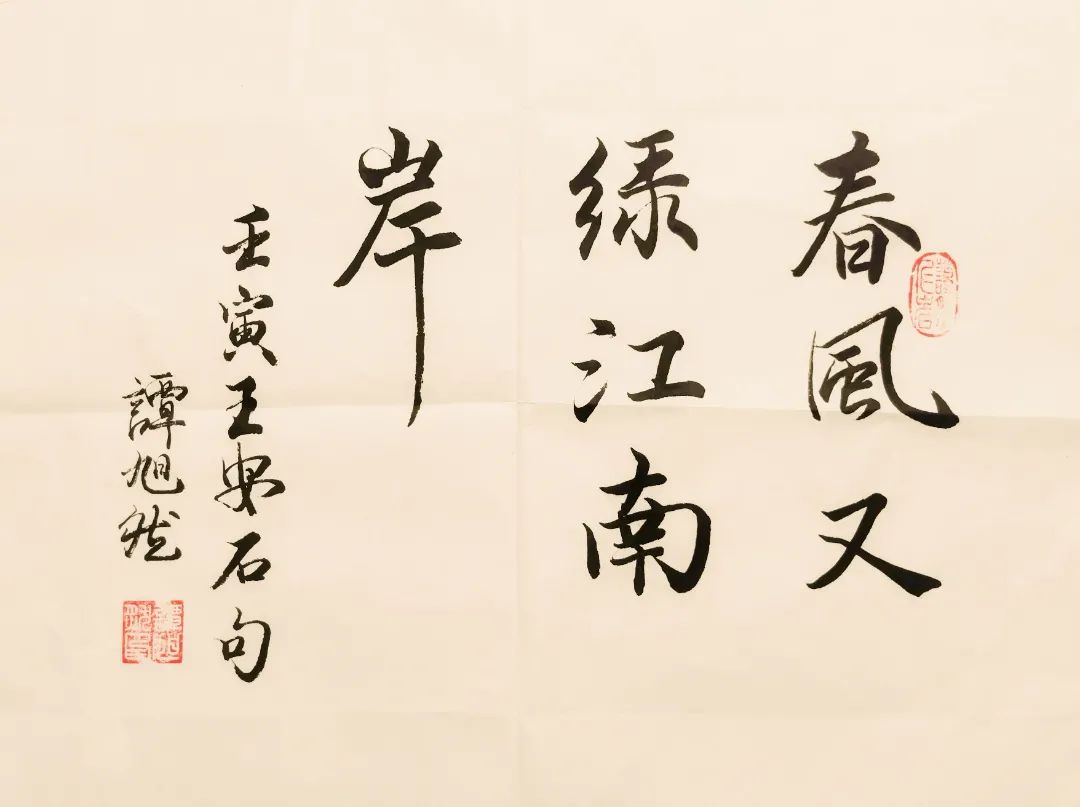 春風又
绿江南
岸
壬寅王安石句
譚旭然